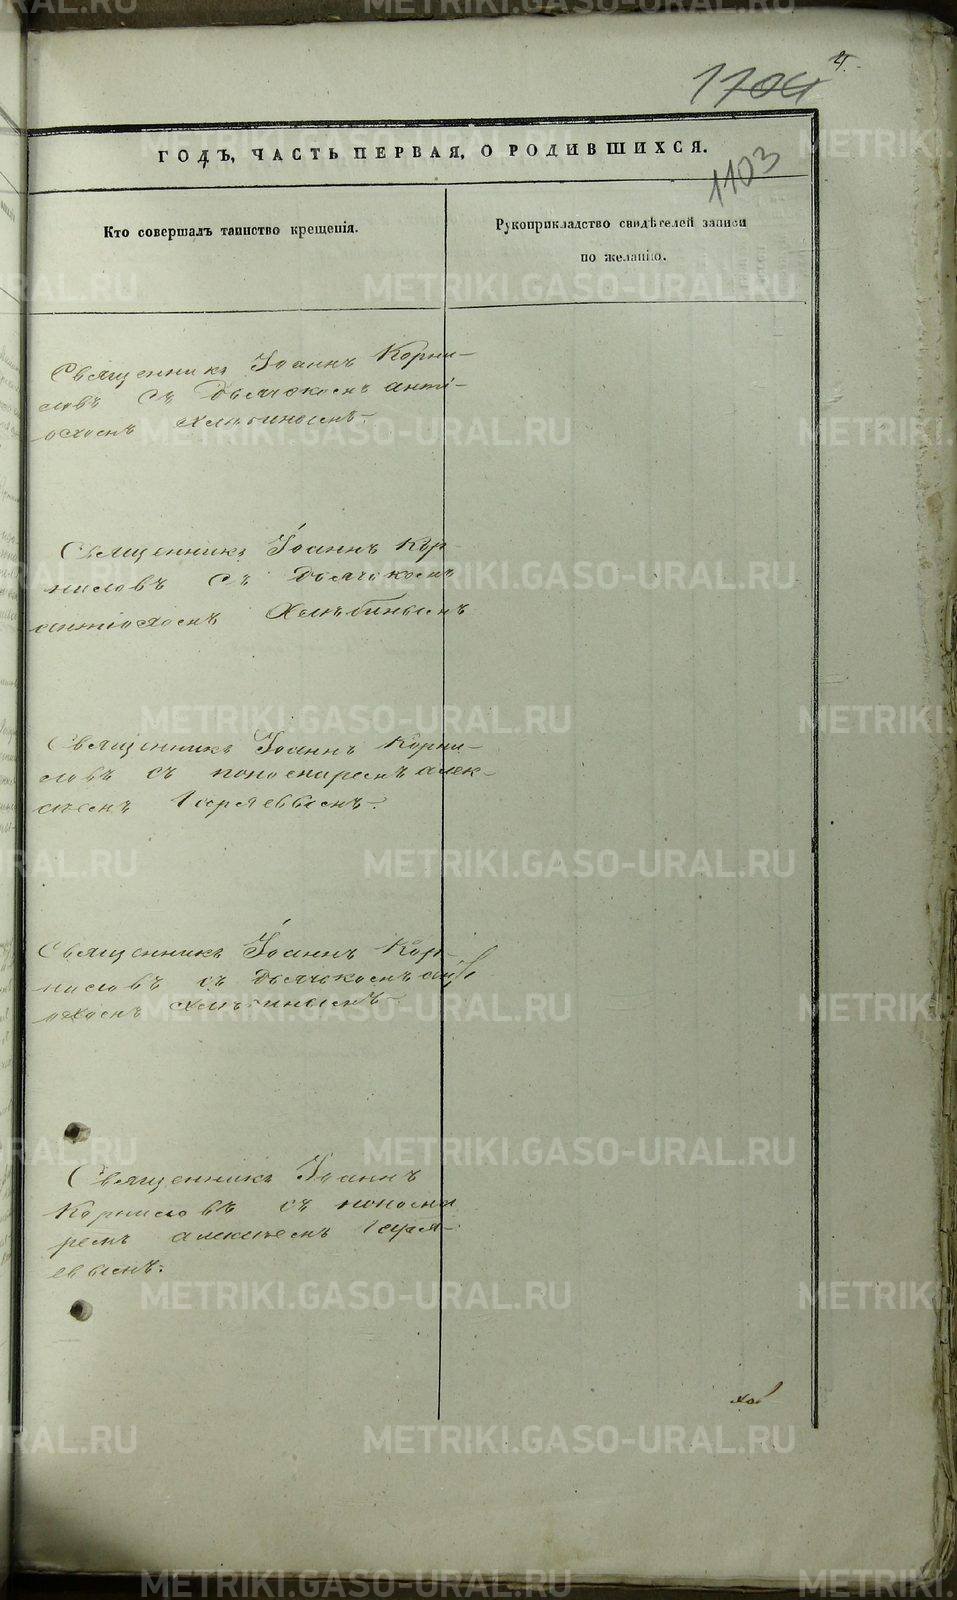 4.
1704
ГОДЪ, ЧАСТЬ ПЕРВАЯ, О РОДИВШИХСЯ.
1103
Кто совершалъ таинство крещенія.
Рукоприкладство свидѣтелей записи
по желанію.
Священникъ Іоаннъ Корни-
ловъ съ Дьячкомъ анті-
охомъ Хлѣбинымъ.
Священникъ Іоаннъ Кор-
ниловъ съ Дьячкомъ
антіохомъ Хлѣбинымъ
Священникъ Іоаннъ Корни-
ловъ съ пономаремъ алек-
сѣемъ
Священникъ Іоаннъ Кор-
ниловъ съ Дьячкомъ анті-
охомъ Хлѣбинымъ
Священникъ Іоаннъ
Корниловъ съ понома
ремъ алексѣемъ
METRIKI.GASO-URAL.RU